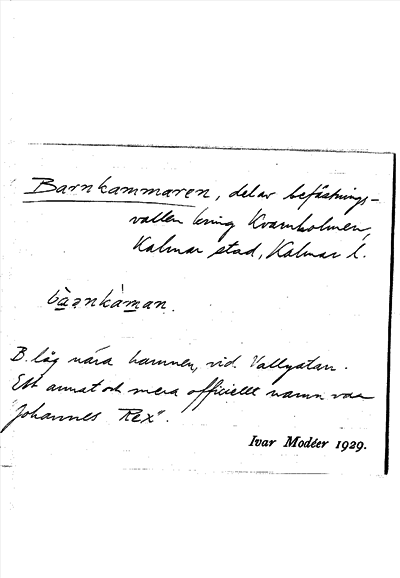 Barnkammaren, del av befästnings-
vallen kring Kvarnholmen,
Kalmar stad, Kalmar l.
bà̱ənkàm̱an.
B. låg nära hamnen, vid Vallgatan.
Ett annat och mera officiellt namn var
"Johannes Rex".
Ivar Modéer 1929.